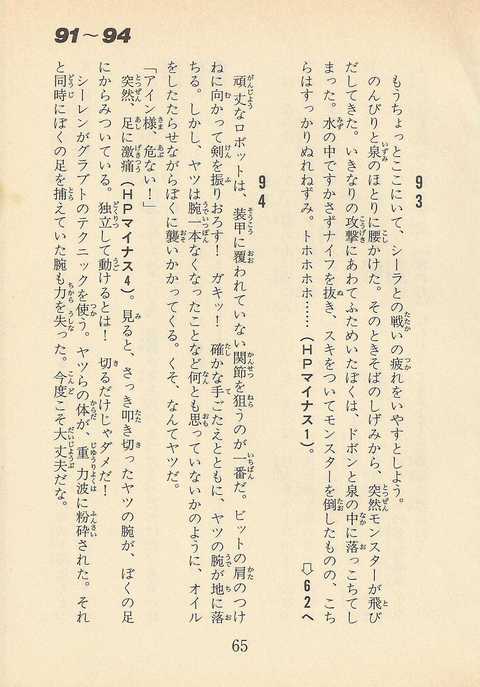 91〜94
93
もうちょっとここにいて、シーラとの戦いの疲れをいやすとしよう。
のんびりと泉のほとりに腰かけた。そのときそばのしげみから、突然モンスターが飛び
だしてきた。いきなりの攻撃にあわてふためいたぼくは、ドボンと泉の中に落っこちてし
まった。水の中ですかさずナイフを抜き、スキをついてモンスターを倒したものの、こち
らはすっかりぬれねずみ。トホホホホ……（HPマイナス1）。
⇨62へ
94
頑丈なロボットは、装甲に覆われていない関節を狙うのが一番だ。ビットの肩のつけ
ねに向かって剣を振りおろす！　ガキッ！　確かな手ごたえとともに、ヤツの腕が地に落
ちる。しかし、ヤツは腕一本なくなったことなど何とも思っていないかのように、オイル
をしたたらせながらぼくに襲いかかってくる。くそ、なんてヤツだ。
「アイン様、危ない！」
突然、足に激痛（HPマイナス4）。見ると、さっき叩き切ったヤツの腕が、ぼくの足
にからみついている。独立して動けるとは！　切るだけじゃダメだ！
シーレンがグラブトのテクニックを使う。ヤツらの体が、重力波に粉砕された。それ
と同時にぼくの足を捕えていた腕も力を失った。今度こそ大丈夫だな。
65